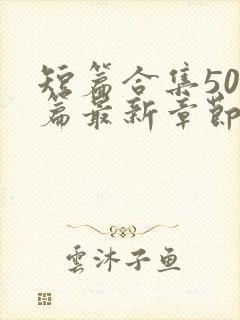 短篇合集50
篇最新章節
雲沐子鱼